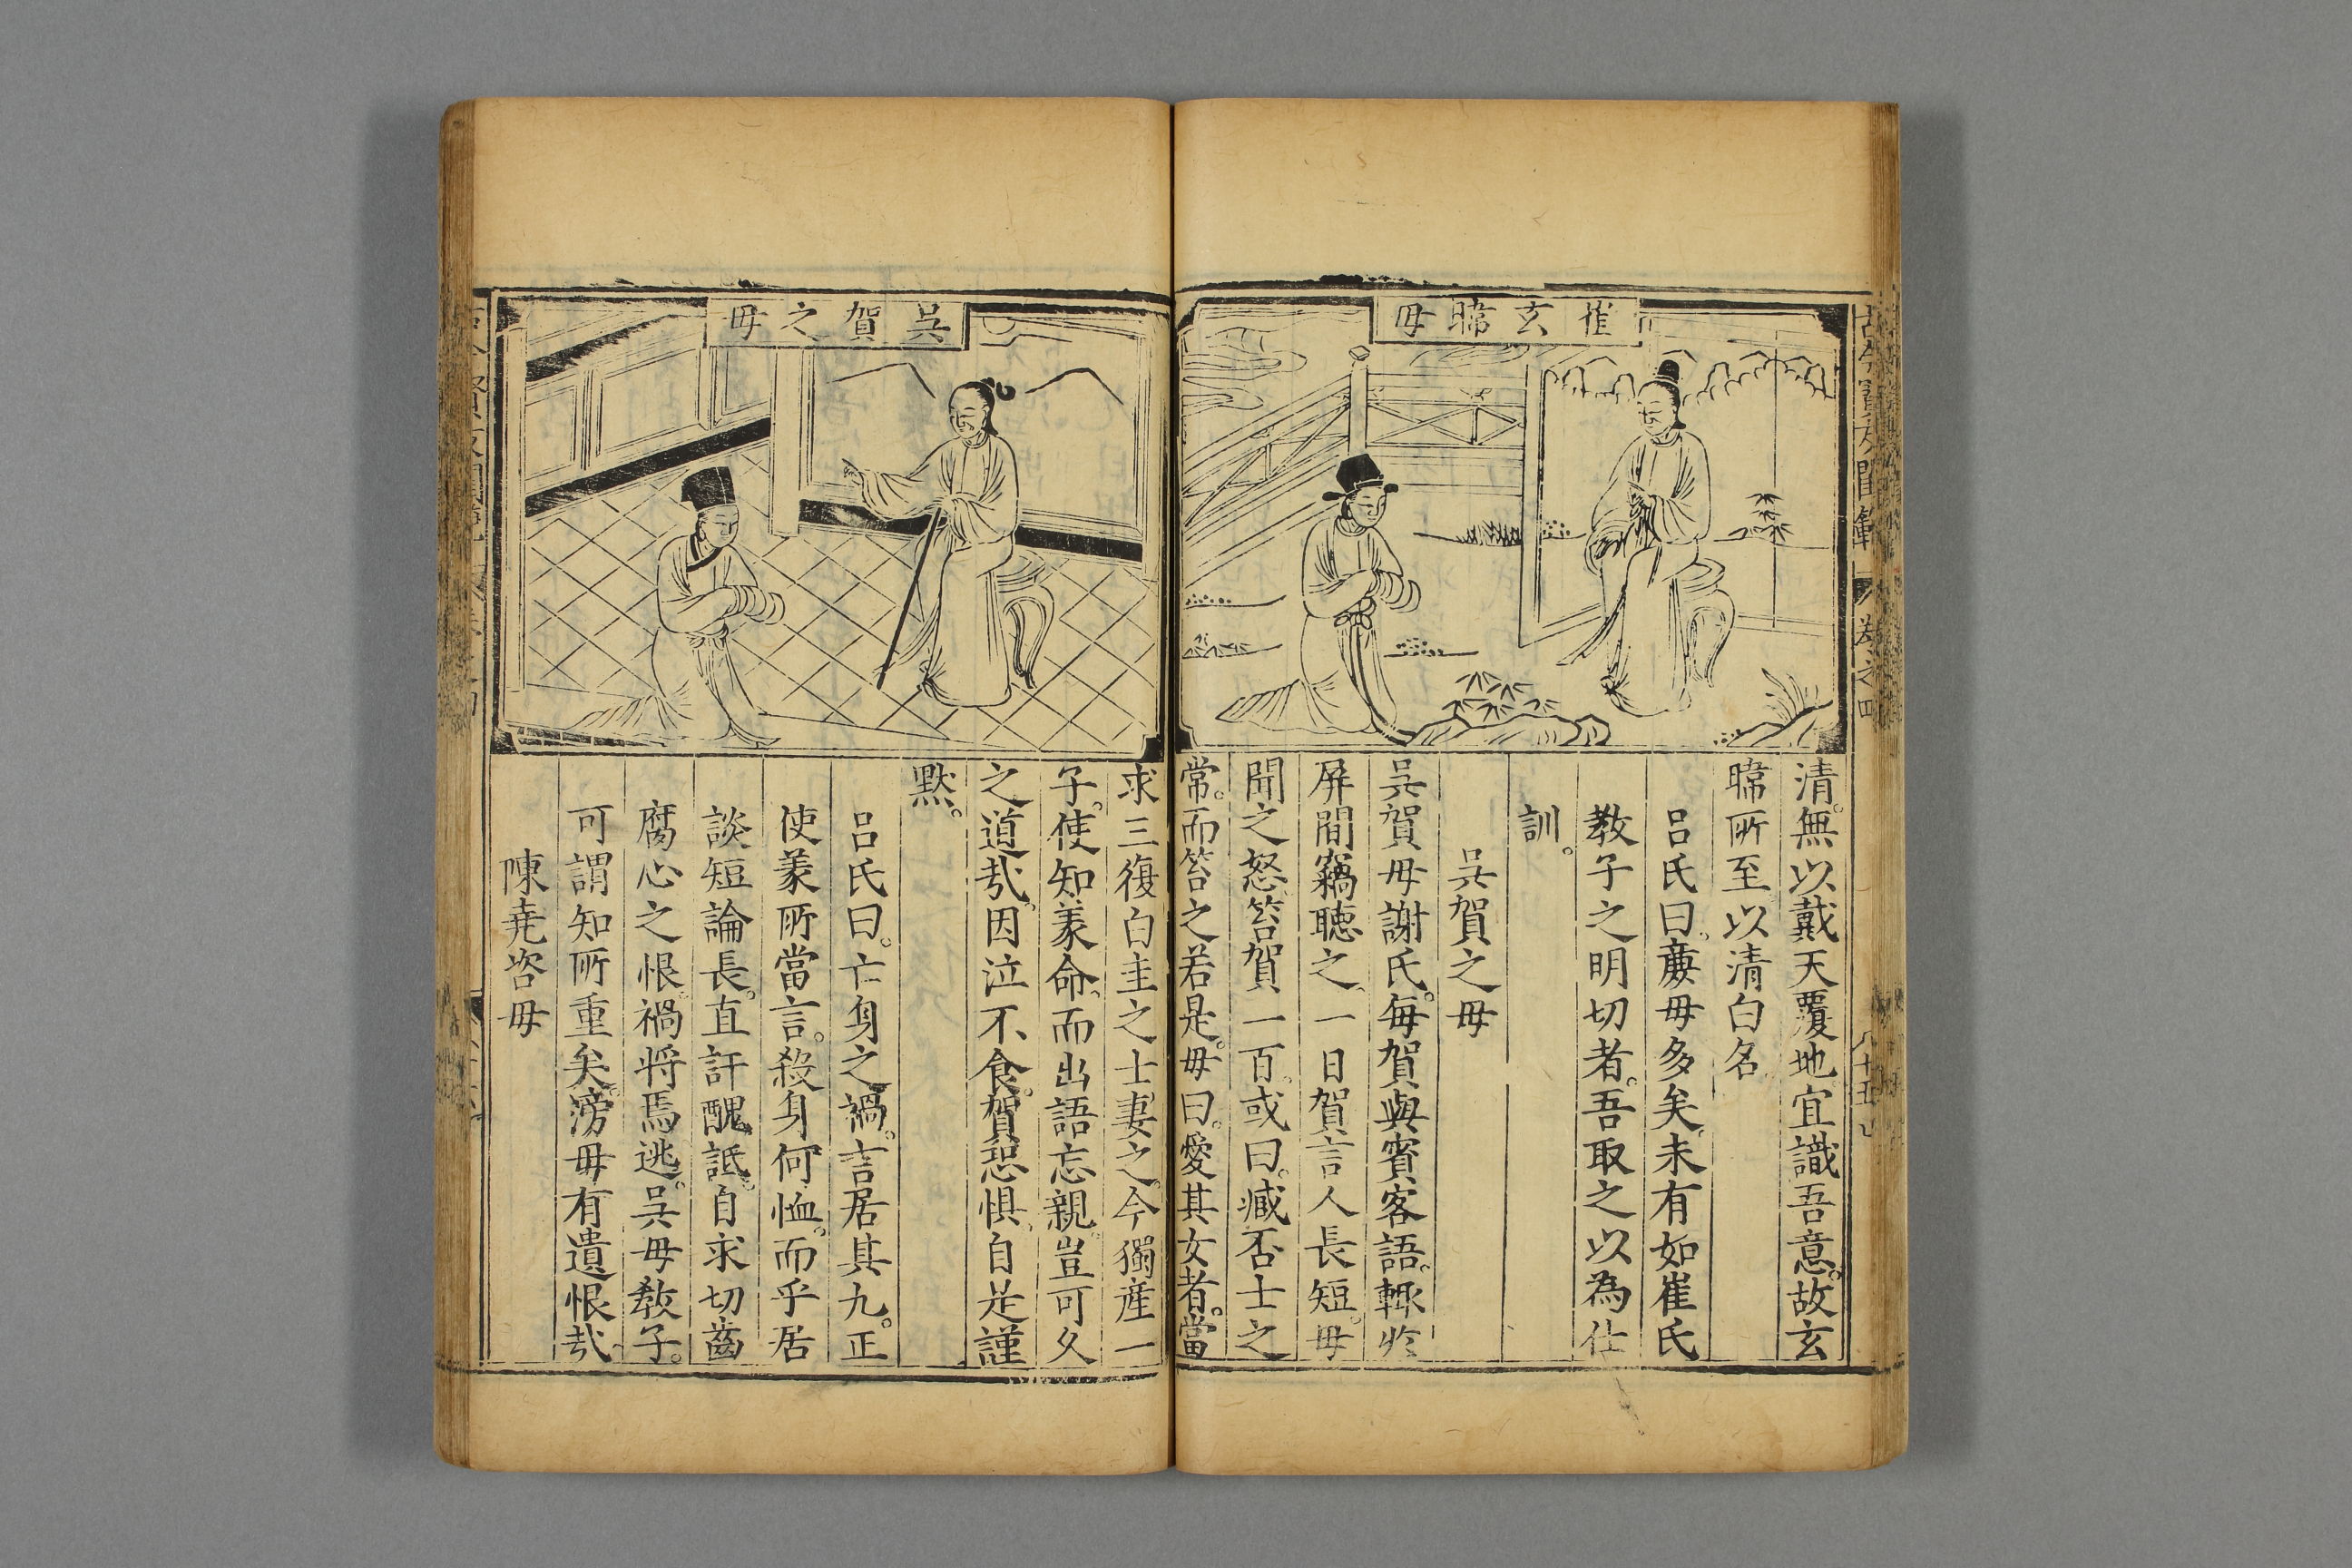 崔玄暐母
清。無以戴天覆地宜識吾意。故玄
暐所至以清白名
呂氏曰。廉母多矣。未有如崔氏
教子之明切者。吾取之以為仕
訓。
吳賀之母
吳賀母謝氏。每賀與賓客語。輒於
屏間竊聴之、一日賀言人長短。母
聞之怒、笞賀一百。或曰。臧否士之
常。而笞之若是。母曰。愛其女者。當
吳賀之母
求三復白圭之士妻之。今獨産一
子。使知義命、而出語忘親。豈可久
之道㢤。因泣不食。賀恐惧、自是謹
默。
呂氏曰。亡身之禍。言居其九。正
使義所當言。殺身何恤。而乎居
談短論長。直訐醜詆。自求切齒
腐心之恨。禍将焉逃。吳母教子。
可謂知所重矣。滂母有遺恨㢤、
陳堯咨母
卷之四